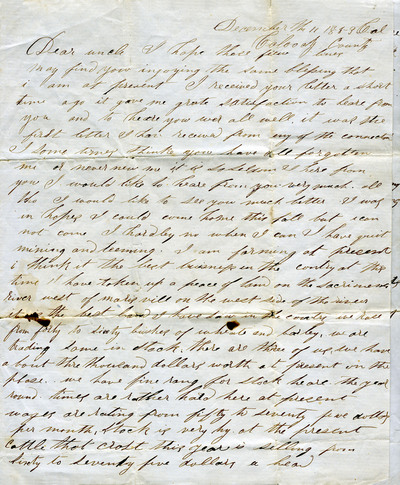 December th 11 1853 Cal
Coloosy County
Dear uncle I hope those fiew lines
may find you injoying the same blessing that
i am at present I received your letter a short
time ago it gave me grate satisfaction to heare from
you and to heare you wer all well. it was the
first letter I hav received from any of the connection
I some times think you have all forgotten
me or never new me it is so seldom I here from
you I would like to heare from you very much. all
tho I would like to see you much better I was
in hopes I could come home this fall but i can
not come I hardley no when I can I have quit
mining and teaming. I am farming at present
i think it the best buisness in the contry at this
time I have taken up a peace of land on the sacramento
river west of marysvill on the west side of the river
the best land in the county we rase
from forty to sixty bushes of wheate and barley, we are
trading some in stock, there are three of us, we have
bout three thousand dollars worth at present on the
plase. we have fine rang for stock heare the year
round. times are rather hard here at present
wages are rating from fifty to seventy five dollars
per month, stock is very hy at the present
cattle that crost this year is selling from
sixty to seventy five dollars a head